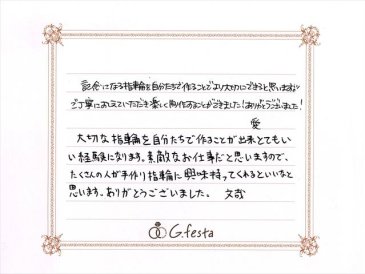 記念になる指輪を自分たちで作ることでより大切にできると思います
ご丁寧におしえていただき楽しく制作することができました！ありがとうございました！
愛
大切な指輪を自分たちで作ることが出来とてもい
い経験になります。素敵なお仕事だと思いますので、
たくさんの人が手作り指輪に興味持ってくれるといいなと
思います。ありがとうございました。
G.festa